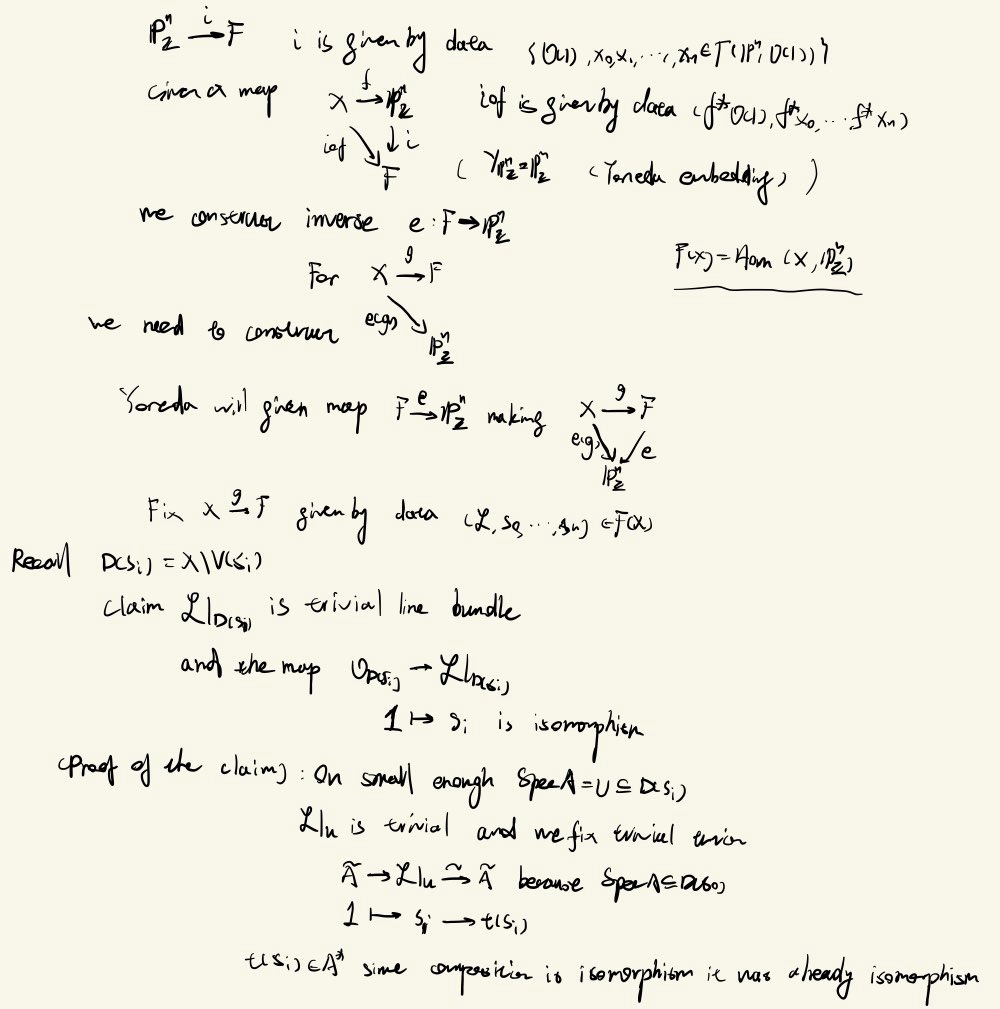 ℙⁿ_ℤ →^i F   i is given by data {O(1), x₀, x₁, ⋯, xₙ ∈ Γ(ℙⁿ, O(1))}
Given a map X →^f ℙⁿ_ℤ   i∘f is given by data (f*O(1), f*x₀, ⋯ f*xₙ)
i∘f ↘ ↓ i
F   ( Y_{ℙⁿ_ℤ} = ℙⁿ_ℤ (Yoneda embedding) )
we construct inverse e : F → ℙⁿ_ℤ
F(X) = Hom (X, ℙⁿ_ℤ)
For X →^g F
we need to construct e(g) ↘ ℙⁿ_ℤ
Yoneda will given map F →^e ℙⁿ_ℤ making X →^g F
e(g) ↘ ↙ e
ℙⁿ_ℤ
Fix X →^g F given by data (ℒ, s₀ ⋯, sₙ) ∈ F(X)
Recall D(sᵢ) = X \ V(sᵢ)
claim ℒ|_{D(sᵢ)} is trivial line bundle
and the map O_{D(sᵢ)} → ℒ|_{D(sᵢ)}
1 ↦ sᵢ is isomorphism
(Proof of the claim) : On small enough Spec A = U ⊆ D(sᵢ)
ℒ|_U is trivial and we fix trivial
Ã → ℒ|_U →^~ Ã because Spec A ⊆ D(s₀)
1 ↦ sᵢ → t(sᵢ)
t(sᵢ) ∈ A* since composition is isomorphism it was already isomorphism